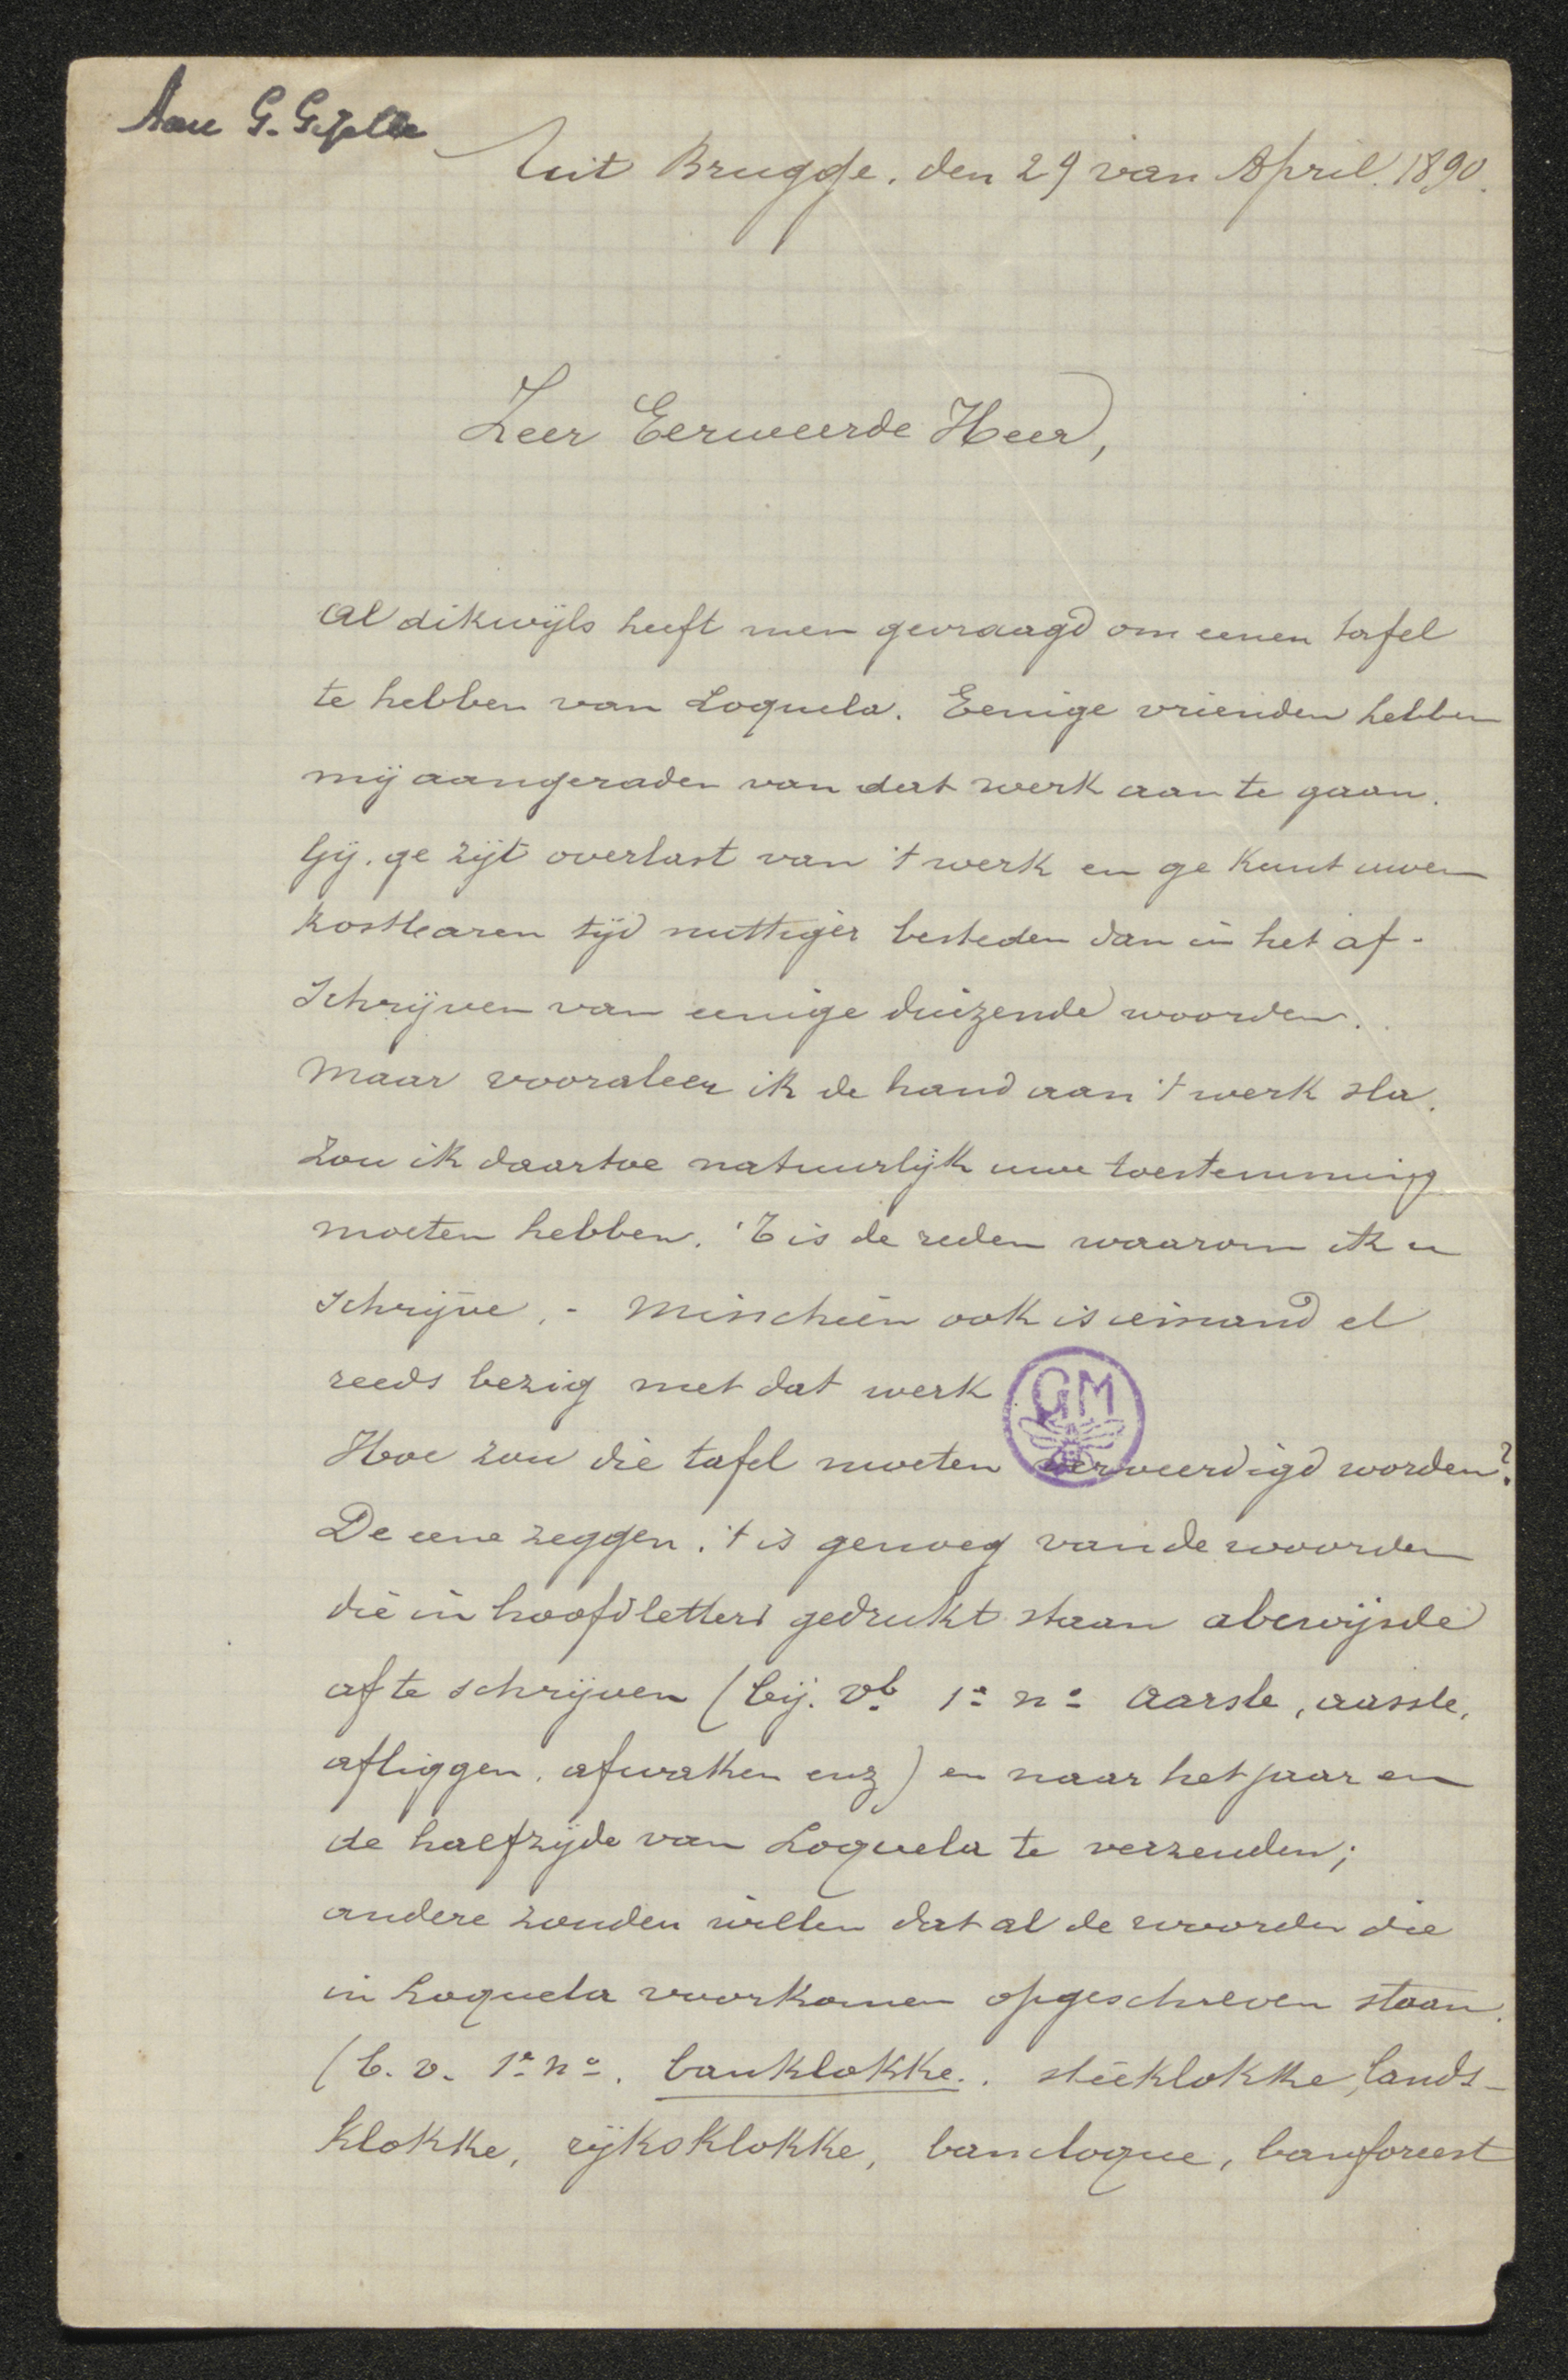 Aan G. Gezelle
Uit Brugge, den 29 van April. 1890.
Zeer Eerweerde Heer,
Al dikwijls heeft men gevraagd om eenen tafel
te hebben van Loquela. Eenige vrienden hebben
mij aangeraden van dat werk aan te gaan.
Gij, ge zijt overlast van 't werk en ge kunt uwen
kostbaren tijd nuttiger besteden dan in het af-
schrijven van eenige duizende woorden.
Maar vooraleer ik de hand aan 't werk sla,
zou ik daartoe natuurlijk uwe toestemming
moeten hebben. 'T is de reden waarom ik u
schrijve. - Misschien ook is iemand el
reeds bezig met dat werk
GM
Hoe zou die tafel moeten verveerdigd worden?
De eene zeggen, 't is genoeg van de woorden
die in hoofdletters gedrukt staan abcwijsde
af te schrijven (bij. vb. 1e no aarsle, aassle,
afliggen, afwaken enz) en naar het jaar en
de halfzijde van Loquela te verzenden;
andere zouden willen dat al de woorden die
in Loquela voorkomen opgeschreven staan.
(b. v. 1e no. banklokke. steeklokke, lands-
klokke, rijksklokke, bancloque, banforeest